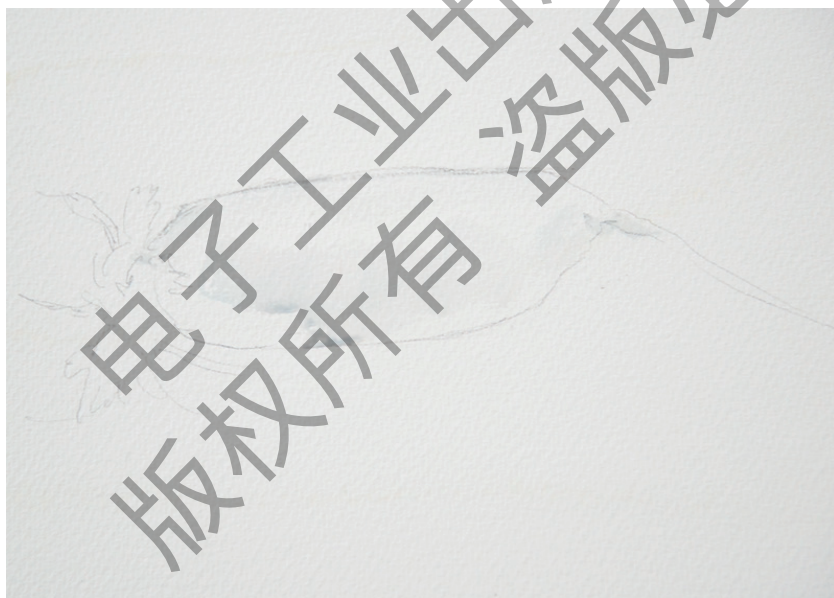 电子工业出
版权所有 盗版必